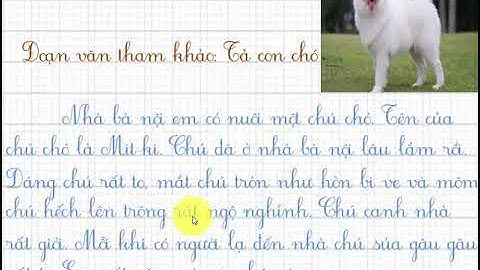 Đoạn văn tham khảo: Tả con chó
Nhà bà nội em có nuôi một chú chó. Tên của
chú chó là Mít-ki. Chú đã ở nhà bà nội lâu lắm rồi.
Dáng chú rất to, mắt chú tròn như hòn bi ve và mõm
chú hếch lên trông rất ngộ nghĩnh. Chú canh nhà
rất giỏi. Mỗi khi có người lạ đến nhà chú sủa gâu gâu